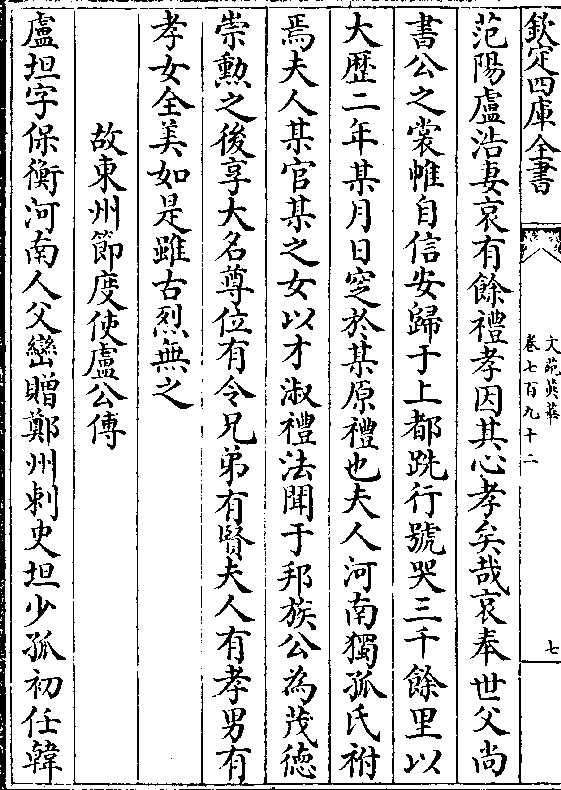 欽定四庫全書
文苑英華
卷七百九十二
七
范陽盧浩妻哀有餘禮孝因其心孝矣哉哀奉世父尚
書公之裳帷自信安歸于上都跣行號哭三千餘里以
大歴二年某月日窆於某原禮也夫人河南獨孤氏祔
焉夫人某官某之女以才淑禮法聞于邦族公為茂徳
崇勲之後享大名尊位有令兄弟有賢夫人有孝男有
孝女全美如是雖古烈無之
故東州節度使盧公傳
盧坦字保衡河南人父巒贈鄭州刺史坦少孤初任韓